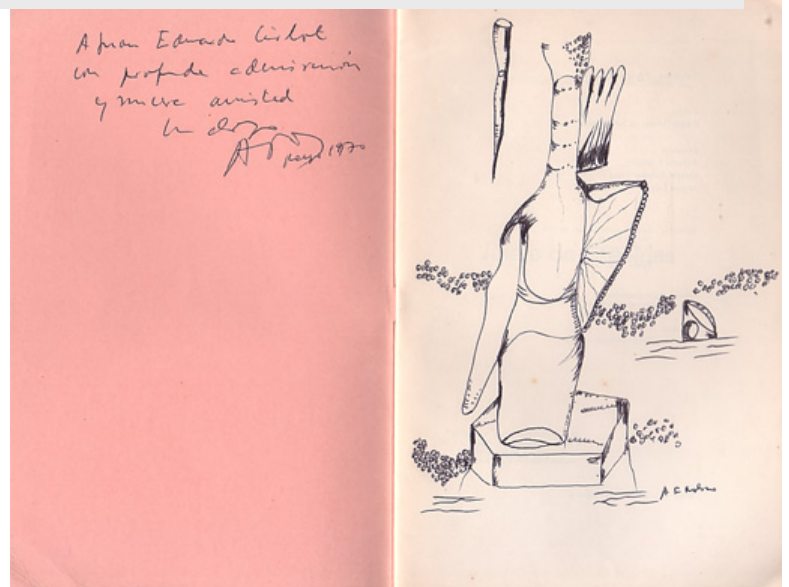 A Juan Eduardo Cirlot
con profunda admiración
y nueva amistad
Un abrazo
mayo 1970